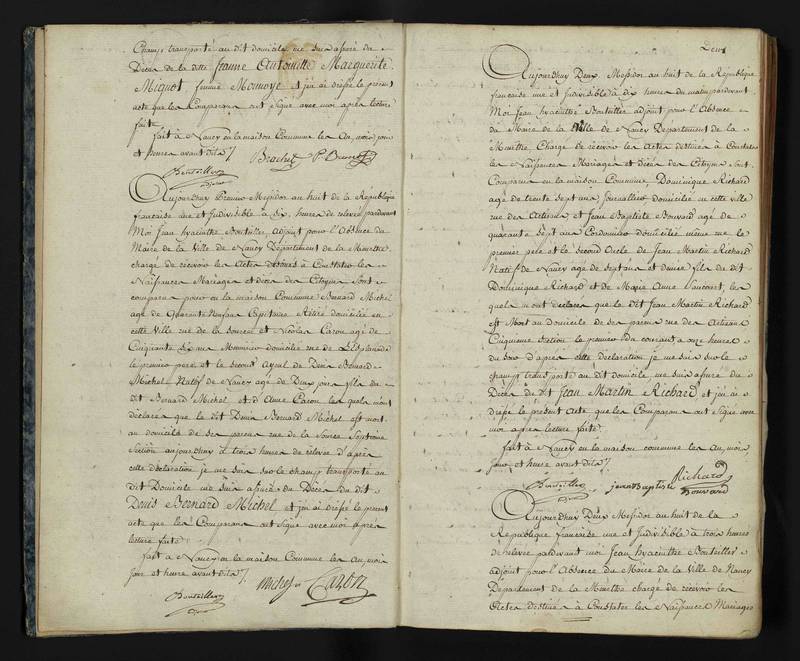 Champ transporté au dit domicile me suis assuré du
Décès de la ditte Jeanne Antoinette Marguerite
Mignot femme et j'ai dressé le présent
acte que les Comparans ont signé avec moi après lecture
faite
fait à Nancy en la maison Commune les An, mois, jour
et heures avant dits
Brachet
Bouteiller
Aujourdhuy Premier Messidor an huit de la République
française une et Indivisible à six heures de relevée pardevant
Moi Jean hyacinthe Bouteiller adjoint pour l'Absence du
Maire de la Ville de Nancy Département de la Meurthe
chargé de recevoir les Actes destinés à Constater les
Naissances Mariages et décès des Citoyens sont
comparus pour en la maison Commune Bernard Michel
agé de Quarante Neuf ans Capitaine Retiré domicilié en
cette Ville rue de la source et Nicolas Caron agé de
Cinquante six ans domicilié rue de L'Esplanade
le premier père et le second Ayeul de Denis Bernard
Michel Natif de Nancy agé de Deux jours fils du
dit Bernard Michel et d'Anne Caron les quels m'ont
déclaré que le dit Denis Bernard Michel est mort
au domicile de ses parens rue de la Source Septième
Section aujourdhuy à trois heures de relevée d'après
cette déclaration je me suis sur le champ transporté au
dit Domicile me suis assuré du Décès du dit
Denis Bernard Michel et j'ai dressé le présent
acte que les Comparans ont signé avec moi après
lecture faite
fait à Nancy en la maison Commune les An, mois
Jour et heure avant dits
Michel Caron
Bouteiller
Deux
Aujourdhuy Deux Messidor an huit de la République
française une et indivisible à dix heures du matin pardevant
Moi Jean hyacinthe Bouteiller adjoint pour l'Absence
du Maire de la Ville de Nancy Département de la
Meurthe Chargé de recevoir les Actes destinés à Constater
les Naissances Mariages et décès des Citoyens sont
Comparus en la maison Commune, Dominique Richard
agé de trente sept ans, Journallier domicilié en cette ville
rue des Artisans et Jean Baptiste Bouvard agé de
quarante sept ans Cordonnier domicilié même rue le
premier père et le second Oncle de Jean Martin Richard
Natif de Nancy agé de sept ans et demie fils du dit
Dominique Richard et de Marie Anne les
quels m'ont déclaré que le dit Jean Martin Richard
est Mort au domicile de ses parens rue des Artisans
Cinquieme Section le premier du courant à onze heures
du soir d'après cette déclaration je me suis sur le
champ transporté au dit domicile me suis assuré du
Décès du dit Jean Martin Richard et j'ai
dressé le présent Acte que les Comparans ont signé avec
moi après lecture faite
fait à Nancy en la maison commune les An, mois
Jour et heure avant dits
Bouteiller jean Baptiste Richard
Bouvard
Aujourdhuy Deux Messidor an huit de la
République française une et Indivisible à trois heures
de relevée pardevant moi Jean hyacinthe Bouteiller
adjoint pour l'Absence du Maire de la Ville de Nancy
Département de la Meurthe chargé de recevoir les
Actes destinés à Constater les Naissances Mariages